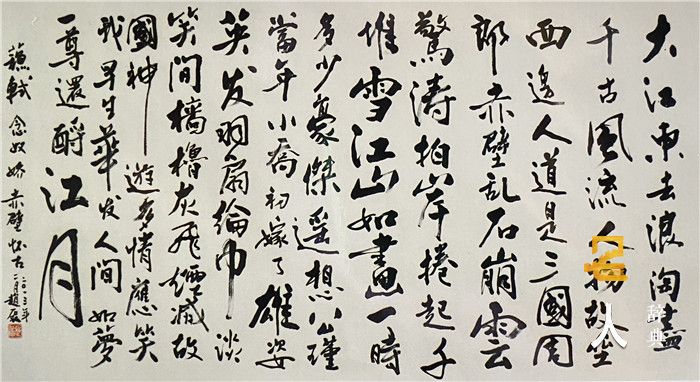 大江東去浪淘盡
千古風流人物故壘
西邊人道是三國周
郎赤壁乱石崩雲
驚濤拍岸捲起千
堆雪江山如畫一時
多少豪傑遥想公瑾
當年小喬初嫁了雄姿
英发羽扇綸巾談
笑間檣櫓灰飛煙滅故
國神遊多情應笑
我早生華发人間如夢
一尊還酹江月
蘇軾念奴嬌赤壁怀古
二〇〇三年
二月趙
名人辞典